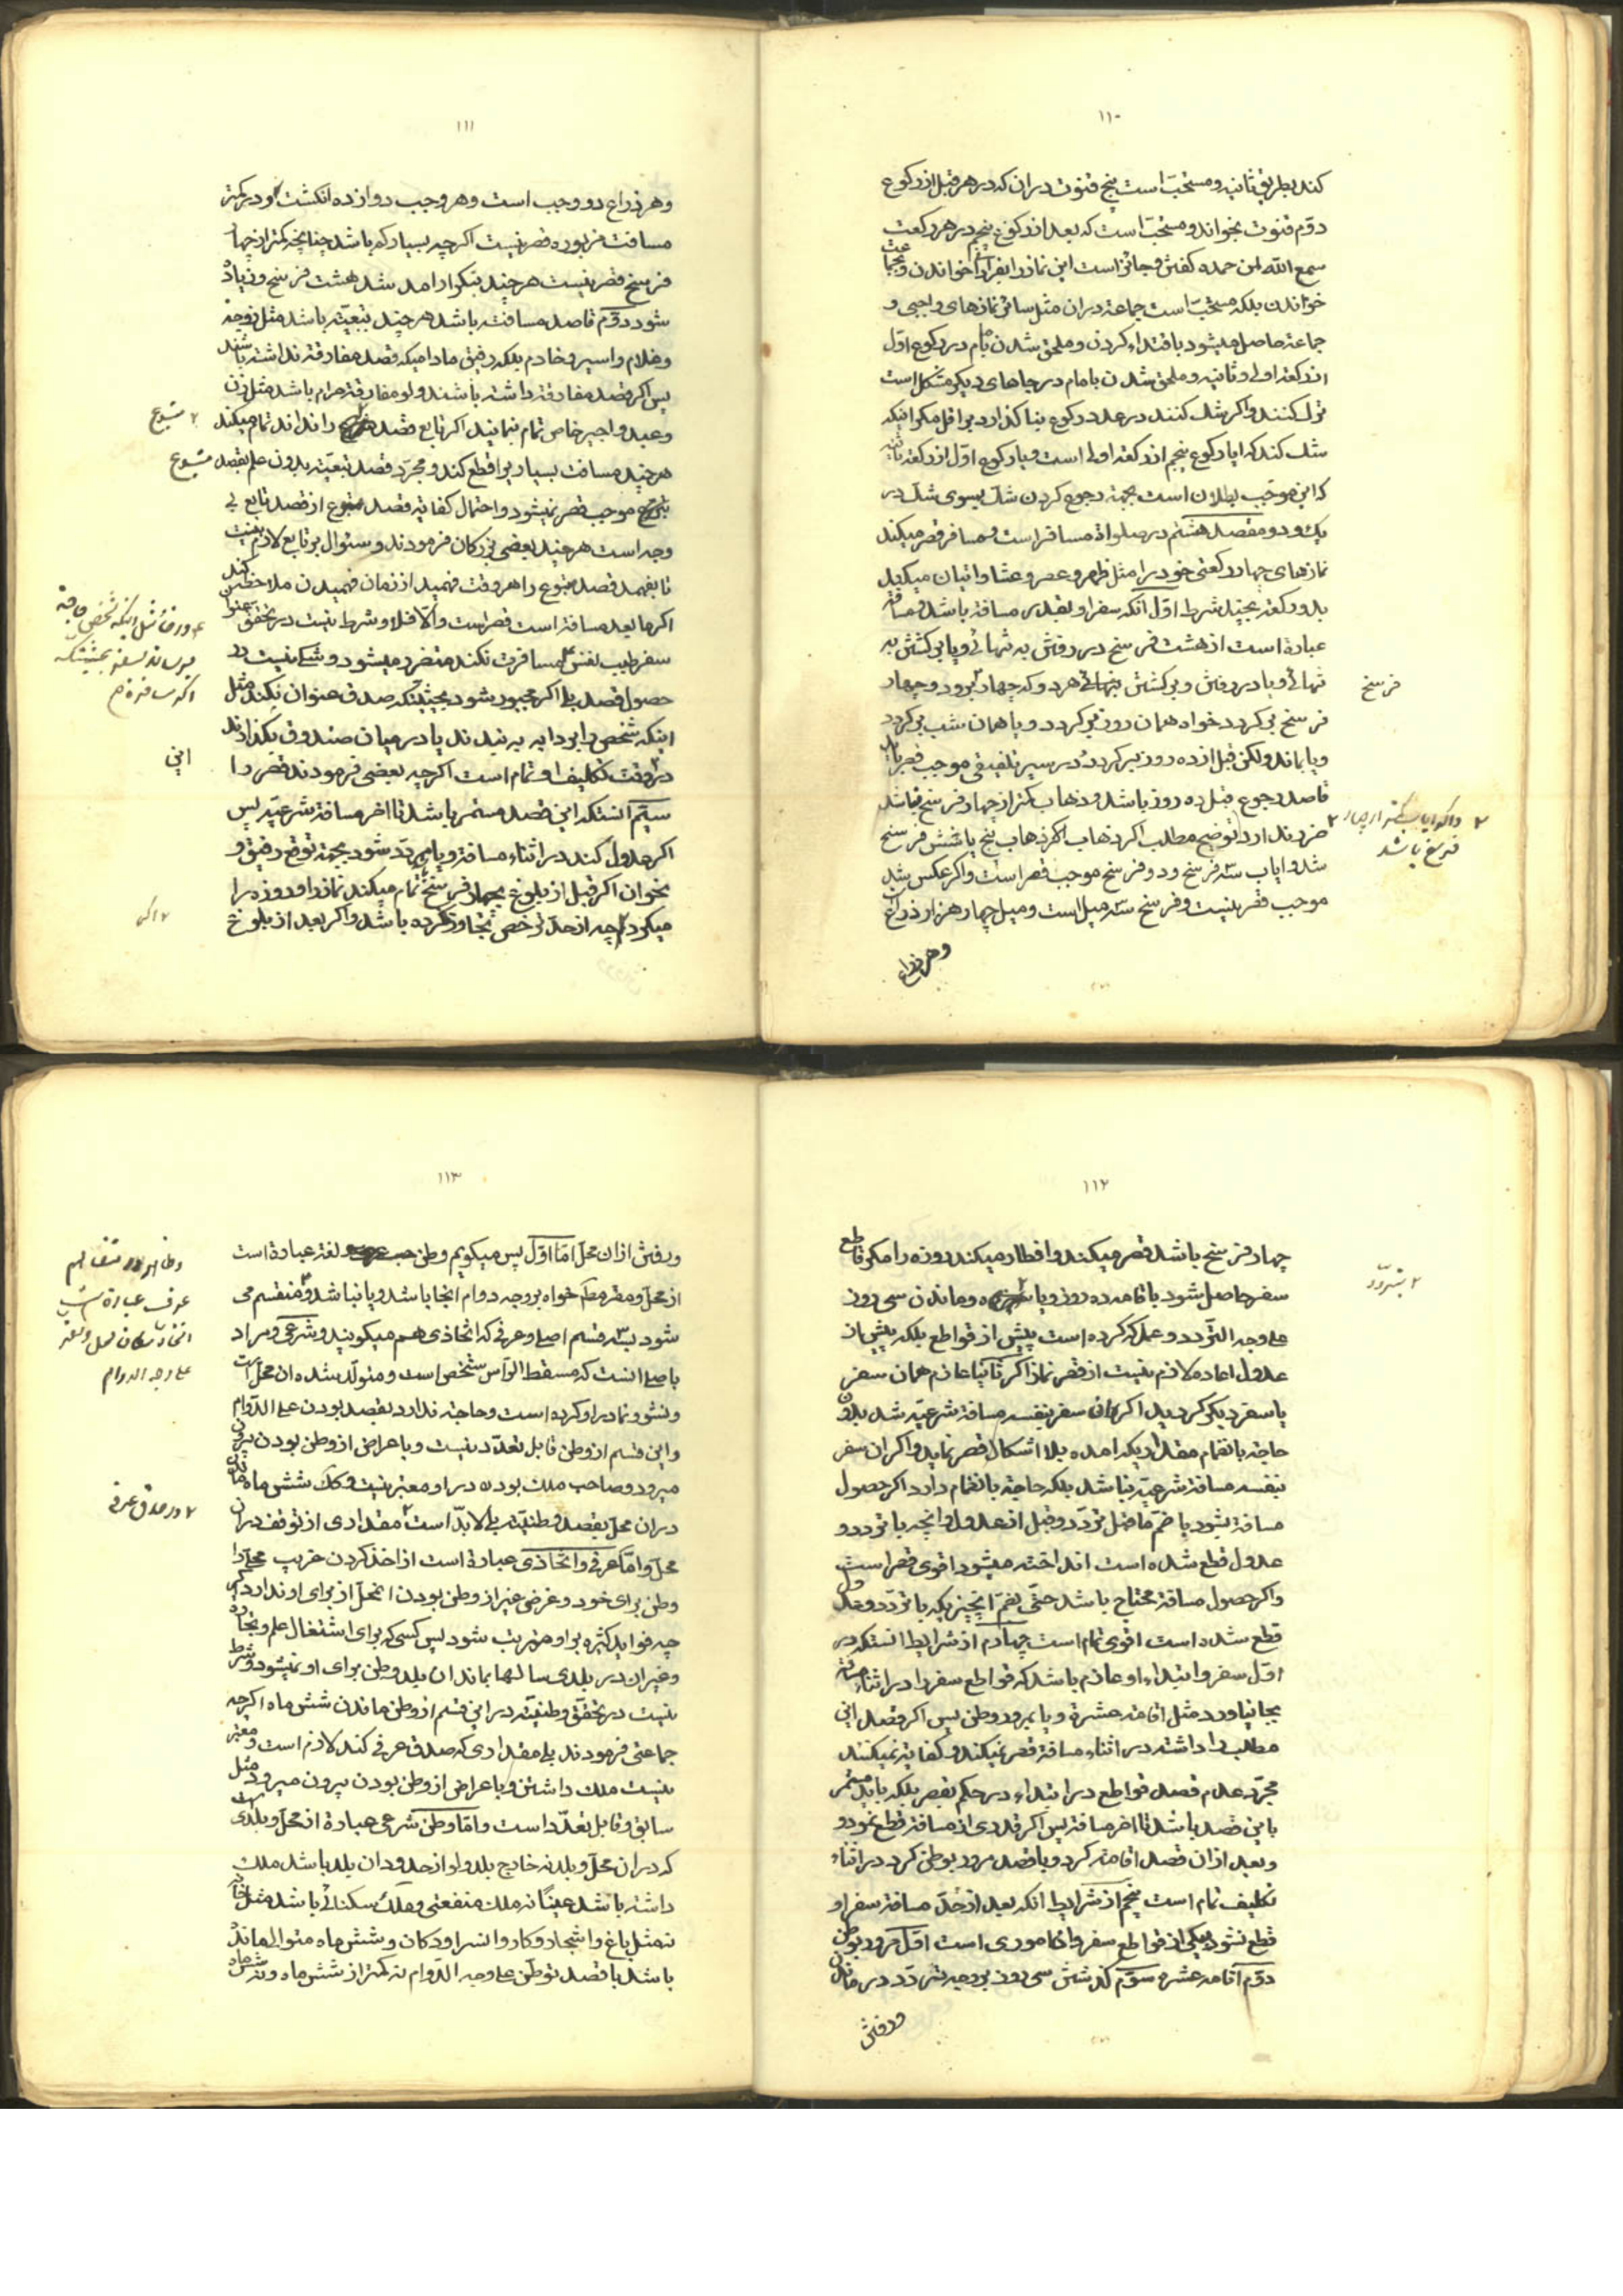 ۱۱۰
کند بطریق ثانیه و مستحبّ است پنج قنوت در ان که در هر قبل از رکوع
دوّم قنوت بخواند و مستحبّ است که بعد از رکوع پنجم در هر رکعت
سمع الله لمن حمده کفتن و جائز است این نماز را بفرادا خواندن و بجماعت
خواندن بلکه مستحبّ است جماعة در ان مثل سائر نمازهای واجبی و
جماعة حاصل میشود باقتداء کردن و ملحق شدن بامام در رکوع اوّل
از رکعة اولی و ثانیه و ملحق شدن بامام در جاهای دیکر مشکل است
ترک کنند و اکر شک کنند در عدد رکوع بنا کذارد بر اقل مکر اینکه
شک کند که ایا رکوع پنجم از رکعة اولی است و یا رکوع اوّل از رکعة ثانیه
که این موجب بطلان است بجهة رجوع کردن شک بسوی شک در
یک و دو مقصد هشتم در صلواة مسافر است و مسافر قصر میکند
نمازهای چهار رکعتی خود را مثل ظهر و عصر و عشا و اتیان میکند
بدو رکعة بچند شرط اوّل انکه سفر او بقدر مسافة باشد و مسافة
عبارة است از هشت فرسخ در رفتن به تنهائی و یا برکشتن به
تنهائی و یا در رفتن و برکشتن هر دو که چهار فرسخ برود و چهار
فرسخ بر کردد خواه همان روز بر کردد و یا همان شب بر کردد
و یا بماند ولکن قبل از ده روز بر کردد و در سیر تلفیقی موجب قصر باید
قاصد رجوع قبل ده روز باشد و ذهاب کمتر از چهار فرسخ نباشد
ضرر ندارد توضیح مطلب اکر ذهاب پنج یا شش فرسخ
شد و ایاب سه فرسخ و دو فرسخ موجب قصر است و اکر عکس شد
موجب قصر نیست و فرسخ سه میل است و میل چهار هزار ذراع
وهر ذراع
فرسخ
۲ و اکر ایاب کمتر از چهار
فرسخ باشد
۱۱۱
وهر ذراع دو وجب است و هر وجب دوازده انکشت و در کمتر
مسافت مزبوره قصر نیست اکرچه بسیار کم باشد چنانچه کمتر از چهار
فرسخ قصر نیست هر چند بتکرار امد شد هشت فرسخ و زیاد
شود دوّم قاصد مسافت باشد هر چند بتبعیّة باشد مثل زوجه
و غلام و اسیر و خادم بلکه رفیق مادامیکه قصد مفارقة نداشته باشند
پس اکر قصد مفارقة داشته باشند ولو مفارقة حرام باشد مثل زن
و عبد و اجیر خاص تمام نمایند اکر تابع قصد را نداند تمام میکند
هر چند مسافت بسیار برا قطع کند و مجرّد قصد تبعیّة بدون علم بقصد متبوع
موجب قصر نمیشود و احتمال کفایة قصد متبوع از قصد تابع بی
وجه است هر چند بعضی بزرکان فرمودند و سئوال بر تابع لازم نیست
تا بفهمد قصد متبوع را هر وقت فهمید از زمان فهمیدن ملاحظه کند
اکر ما بعد مسافة است قصر است و الّا فلا و شرط نیست در تحقق
سفر طیب نفس مسافرت نکند متضرر میشود و شکی نیست در
حصول قصد بلی اکر مجبور بشود بحیثیتکه صدق عنوان نکند مثل
اینکه شخص را بر دابه به بندند یا در میان صندوق بکذارند
در وقت تکلیف او تمام است اکرچه بعضی فرمودند قصر را
سیّم انستکه این قصد مستمر باشد تا اخر مسافة شرعیّه پس
اکر عدول کند در اثناء مسافة و یا مردّد شود بجهة توقع رفیق و
نحوان اکر قبل از بلوغ بچهار فرسخ تمام میکند نماز را و روزه را
میکرد اکر چه از حدّ ترخص تجاوز کرده باشد و اکر بعد از بلوغ
۲ متبوع
متبوع
این
۲ اکر
۱۱۲
چهار فرسخ باشد قصر میکند و افطار میکند روزه را مکر قاطع
سفر حاصل شود باقامه ده روز و یا و ماندن سی روز
علی وجه التّردد و عمل که کرده است پیش از قواطع بلکه پیش از
عدول اعاده لازم نیست از قصر نماز اکر ثانیا عازم همان سفر
یا سفر دیکر کردید اکر ان سفر بنفسه مسافة شرعیّه شد بدون
حاجة بانضمام مقدار یکه امده بلا اشکال قصر نماید و اکر ان سفر
بنفسه مسافة شرعیّه نباشد بلکه حاجة بانضمام دارد اکر حصول
مسافة بشود با ضمّ ما قبل تردّد و قبل از عدول وانچه با تردد و
عدول قطع شده است انداخته میشود اقوی قصر است
واکر حصول مسافة محتاج باشد حتّی بضمّ انچیزیکه با تردّد و عدول
قطع شده است اقوی تمام است چهارم از شرایط انستکه در
اوّل سفر و ابتداء او عازم باشد که قواطع سفر را در اثناء مسافة
بجا نیاورد مثل اقامه عشرة و یا مرور وطن پس اکر قصد این
مطالب را داشته در اثناء مسافة قصر نمیکند و کفایة نمیکند
مجرّد عدم قصد قواطع در ابتداء در حکم بقصر بلکه باید مستمر
باین قصد باشد تا اخر مسافة پس اکر قدری از مسافة قطع نمود و
و بعد از ان قصد اقامه کرد و یا قصد مرور بوطن کرد در اثناء
تکلیف تمام است پنجم از شرایط انکه بعد از حدّ مسافة سفر او
قطع نشود بیکی از قواطع سفر و انها اموری است اوّل مرور بوطن
دوّم اقامه عشره سوّم کذشتن سی روز بر وجه تردّد در ماندن
ورفتن
۲ بتردّد
۱۱۳
ورفتن از ان محلّ امّا اوّل پس میکویم وطن لغة عبارة است
از محلّ و مقرّ خواه بر وجه دوام انجا باشد و یا نباشد و منقسم می
شود بسه قسم اصلی و عرفی که اتخاذی هم میکویند و شرعی و مراد
باصلی انست که مسقط الرّاس شخص است و متولّد شده ان محل است
و نشو و نما در او کرده است و حاجة ندارد بقصد بودن علی الدّوام
و این قسم از وطن قابل تعدّد نیست و با عراض از وطن بودن بیرون
میرود و صاحب ملک بودن در او معتبر نیست و کک شش ماه ماندن
در ان محلّ بقصد وطنیّة بلی لا بدّ است مقداری از توقف در ان
محلّ و امّا عرفی و اتّخاذی عبارة است از اخذ کردن غریب محلّ را
وطن برای خود و غرضی غیر از وطن بودن انمحلّ از برای او ندارد اکر
چه فواید کثیره بر او مترتب شود پس کسی که برای اشتغال علم و تجارة
و غیر ان در بلدی سالها بماند ان بلد وطن برای او نمیشود و شرط
نیست در تحقق وطنیّة در این قسم از وطن ماندن شش ماه اکرچه
جماعتی فرمودند بلی مقداری که صدق عرفی کند لازم است و معتبر
نیست ملک داشتن و با عراض از وطن بودن بیرون میرود مثل
سابق و قابل تعدّد است و امّا وطن شرعی عبارة از محلّ و بلدی است
که در ان محلّ و بلد نه خارج بلد و لو از حدود ان بلد باشد ملک
داشته باشد عینًا نه ملک منفعتی و ملک سکنائی باشد مثل خانه
نه مثل باغ و اشجار و کاروانسرا و دکان و شش ماه متوالی مانده
باشد با قصد توطّن علی وجه الدّوام نه کمتر از شش ماه و نه شش ماه
عرف عبارة است
اتخاذ مکان محل و مقر
علی وجه الدوام
۲ در صدق عرفی